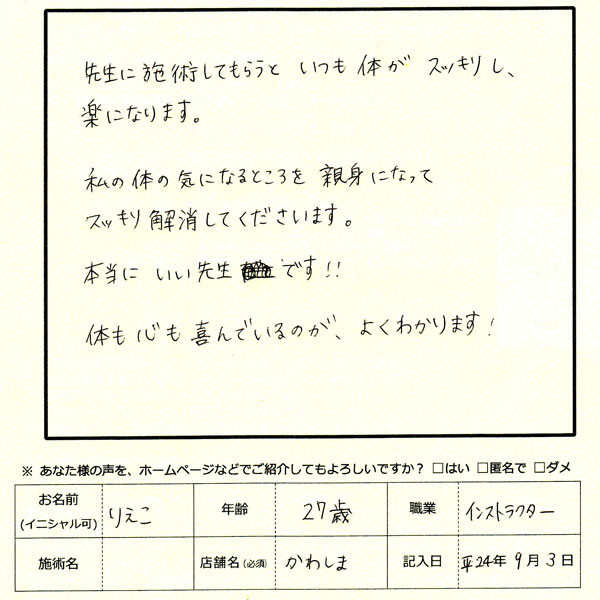 先生に施術してもらうと いつも 体が スッキリし、
楽になります。
私の体の気になるところを 親身になって
スッキリ解消してくださいます。
本当に いい先生 です!!
体も心も喜んでいるのが、よくわかります!
※ あなた様の声を、ホームページなどでご紹介してもよろしいですか? □はい □匿名で □ダメ
お名前
(イニシャル可) りえこ 年齢 27歳 職業 インストラクター
施術名 店舗名(必須) かわしま 記入日 平24年 9月 3日